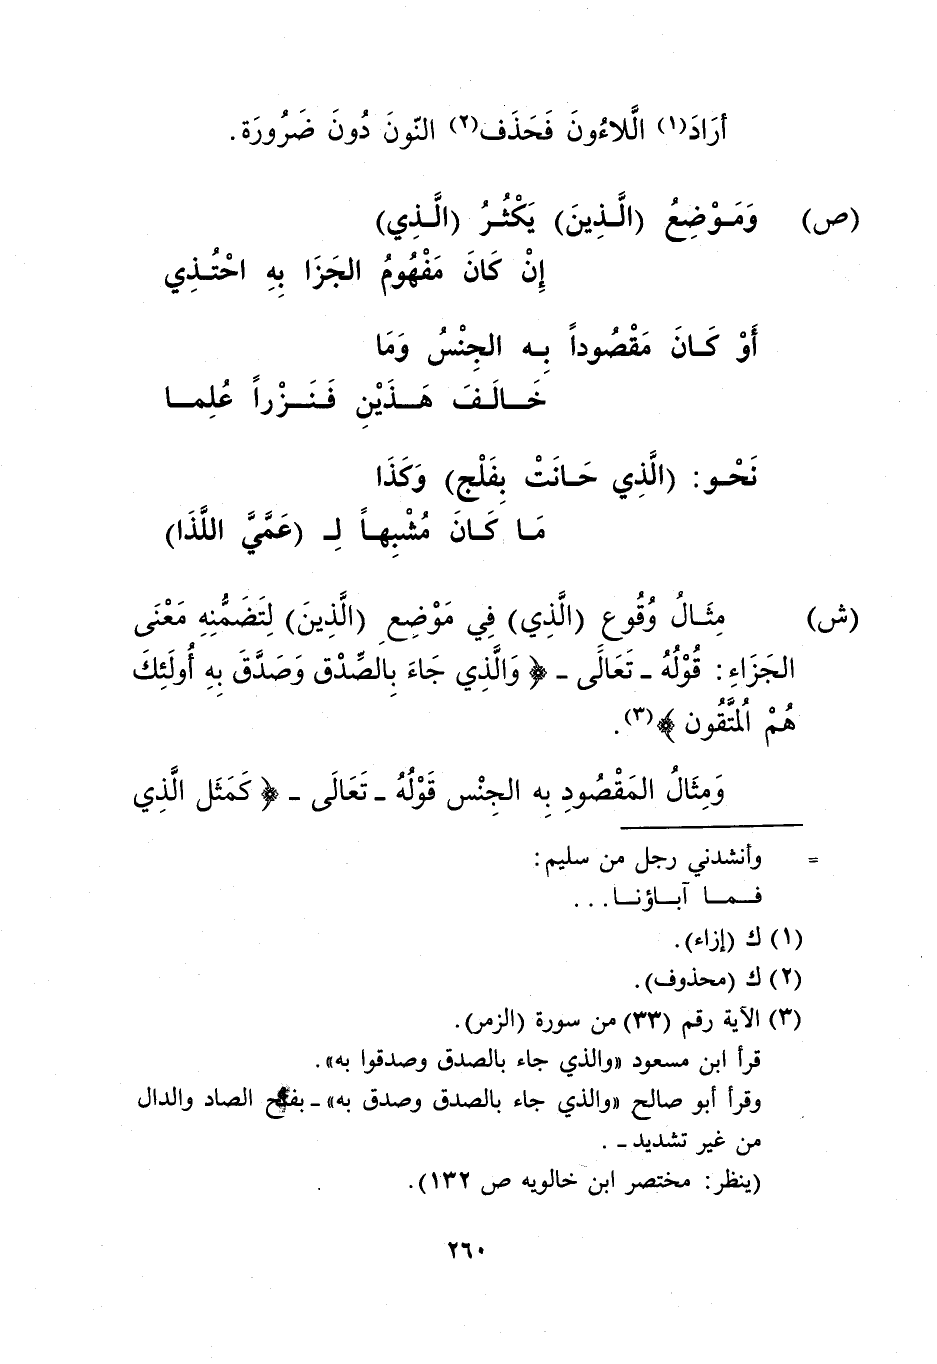 أَرَادَ(١) الَّلاءُونَ فَحَذَف(٢) النّونَ دُونَ ضَرُورَة.
(ص) وَمَـوْضِعُ (الَّـذِينَ) يَكْثُـرُ (الَّـذِي)
إِنْ كَانَ مَفْهُومُ الجَزَا بِهِ احْتُـذِي
أَوْ كَـانَ مَقْصُوداً بِـه الجِنْسُ وَمَا
خَـالَـفَ هَـذَيْنِ فَـنَـزْراً عُلِمـا
نَحْـو: (الَّذِي حَـانَتْ بِفَلْج) وَكَذَا
مَـا كَـانَ مُشْبِهـاً لِـ (عَمَّيَّ اللَّذَا)
(ش) مِثَـالُ وُقُوع (الَّذِي) فِي مَوْضِع (الَّذِينَ) لِتَضَمُّنِهِ مَعْنَى
الجَزَاءِ: قُوْلُهُ ـ تَعَالَى ـ ﴿ وَالَّذِي جَاءَ بِالصِّدْق وَصَدَّقَ بِهِ أُولَئِكَ
هُمْ الُمتَّقُون ﴾(٣).
وَمِثَالُ المَقْصُودِ بِه الجِنْس قَوْلُهُ ـ تَعَالَى ـ ﴿ كَمَثَل الَّذِي
= وأنشدني رجل من سليم:
فـمـا آبـاؤنـا...
(١) ك (إزاء).
(٢) ك (محذوف).
(٣) الآية رقم (٣٣) من سورة (الزمر).
قرأ ابن مسعود «والذي جاء بالصدق وصدقوا به».
وقرأ أبو صالح «والذي جاء بالصدق وصدق به» ـ بفتح الصاد والدال
من غير تشديد ـ .
(ينظر: مختصر ابن خالويه ص ١٣٢).
٢٦٠